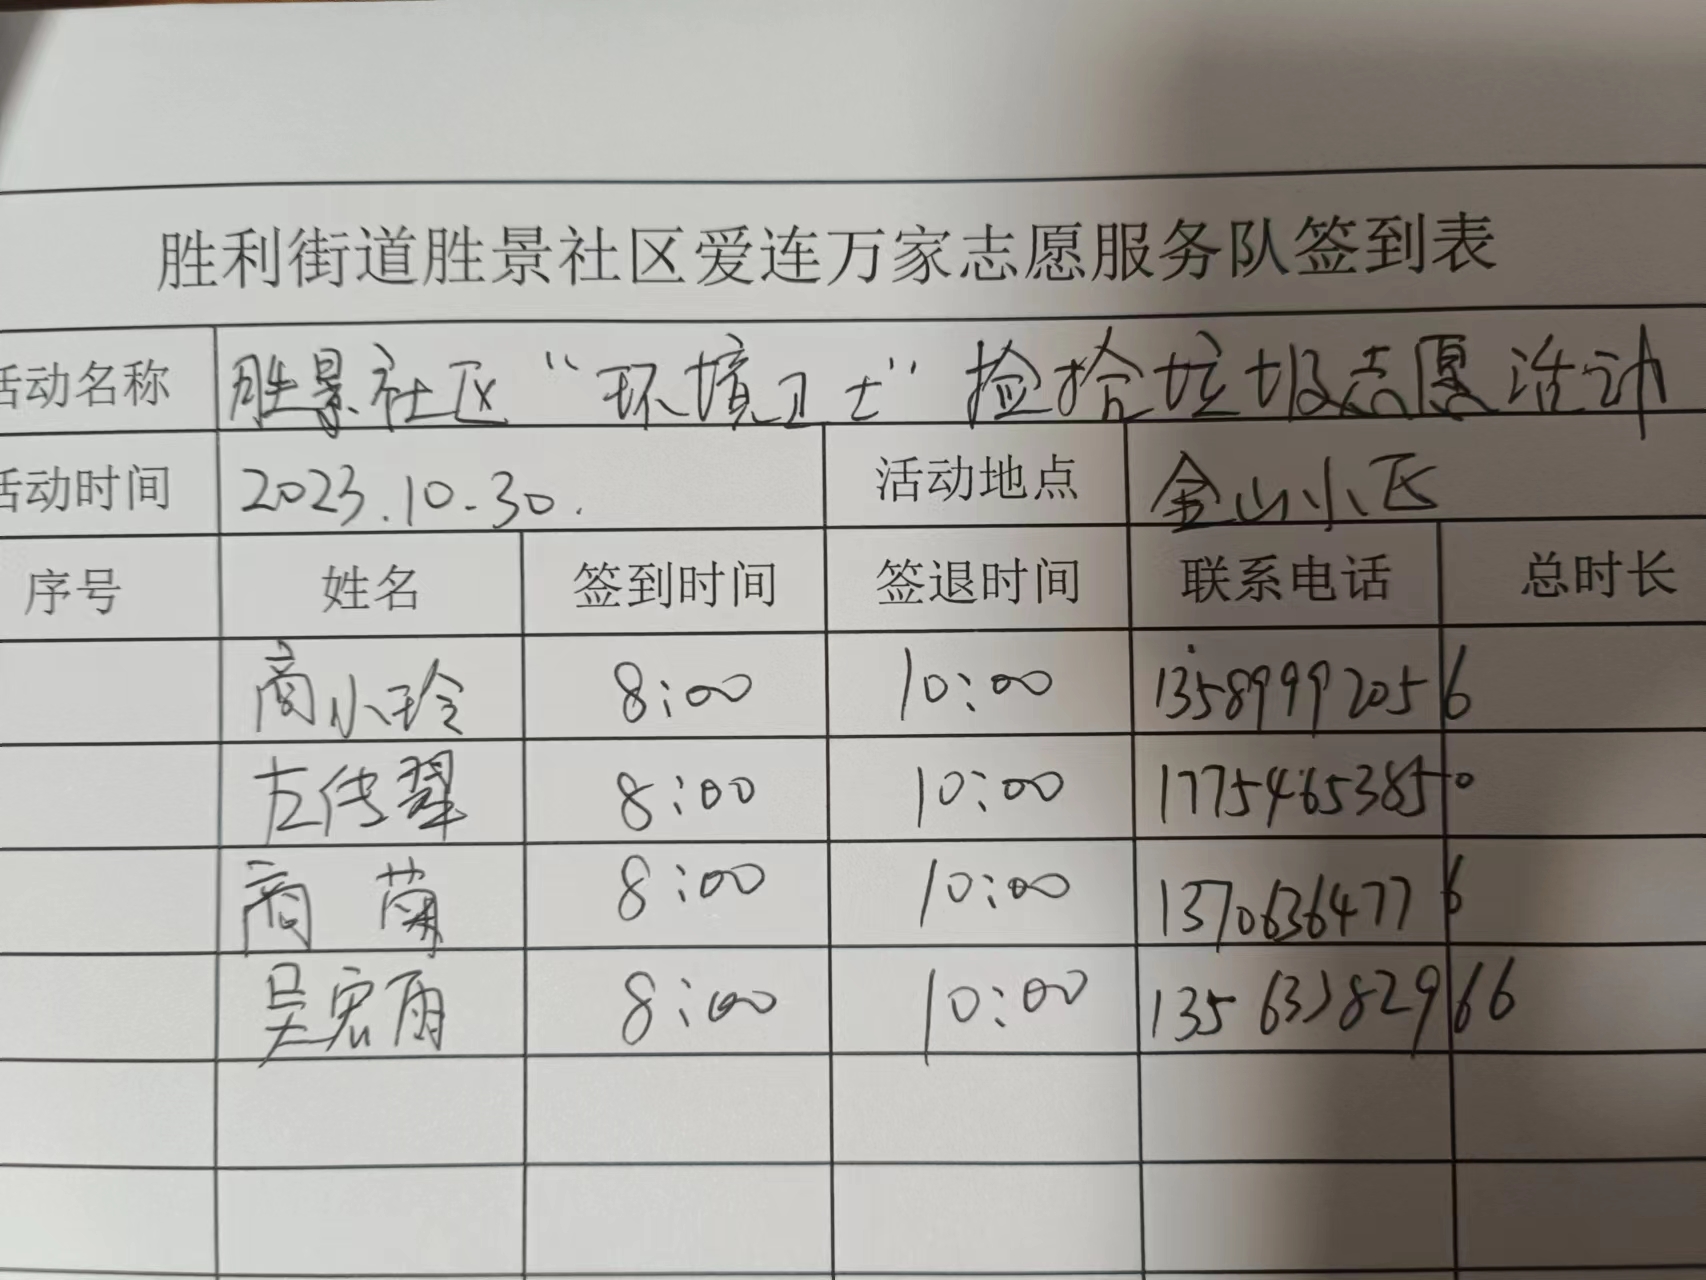 胜利街道胜景社区爱连万家志愿服务队签到表
活动名称 胜景社区“环境卫士”捡拾垃圾志愿活动
活动时间 2023.10.30. 活动地点 金山小区
序号 姓名 签到时间 签退时间 联系电话 总时长
商小玲 8:00 10:00 13589992056
左传翠 8:00 10:00 17754653850
商菊 8:00 10:00 13706364776
吴宏雨 8:00 10:00